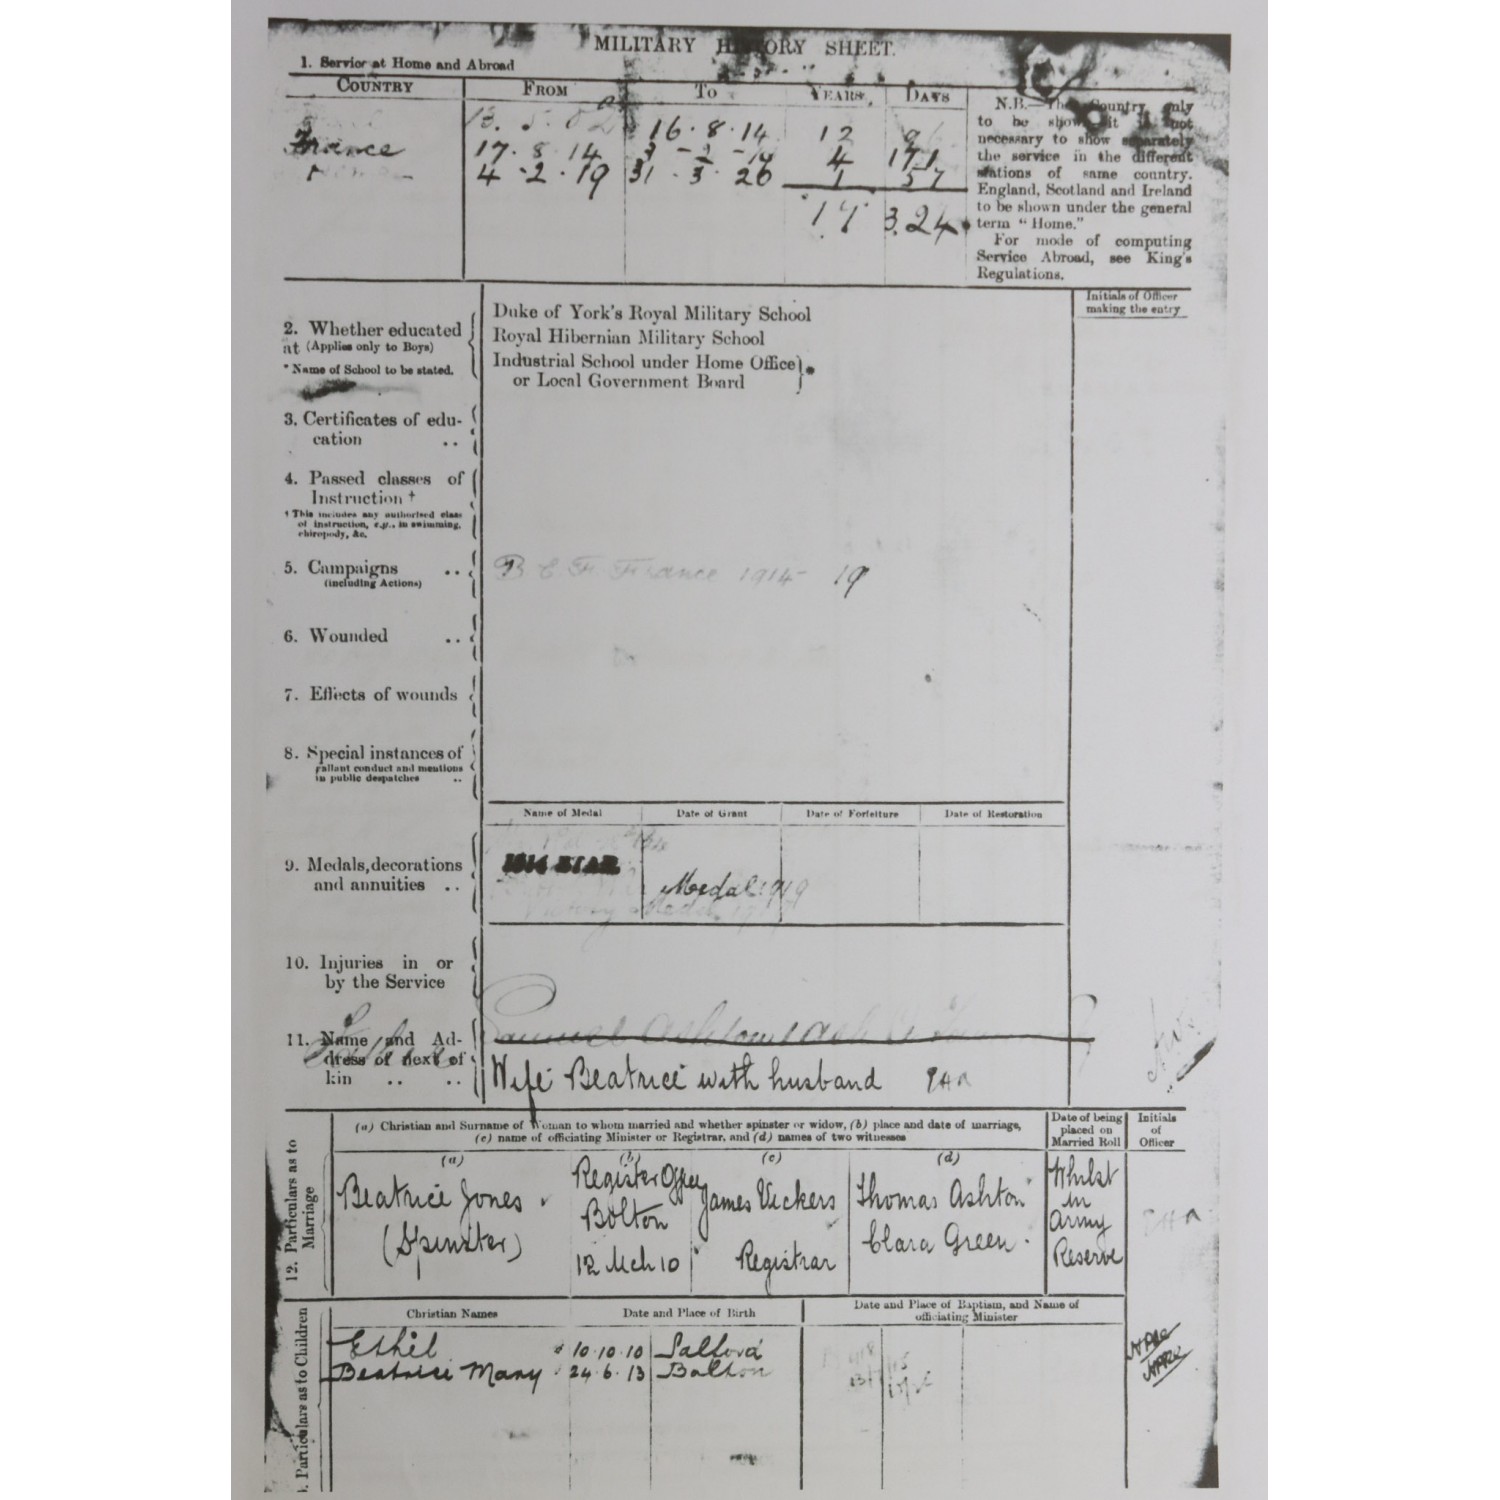 MILITARY HISTORY SHEET.
1. Service at Home and Abroad
COUNTRY FROM TO YEARS DAYS
16.8.14 12
France 17.8.14 4 171
4.2.19 31-3-20 1 57
17 324
N.B.—The Country only
to be shown it is not
necessary to show separately
the service in the different
stations of same country.
England, Scotland and Ireland
to be shown under the general
term "Home."
For mode of computing
Service Abroad, see King's
Regulations.
Initials of Officer
making the entry
2. Whether educated
at (Applies only to Boys)
* Name of School to be stated.
Duke of York's Royal Military School
Royal Hibernian Military School
Industrial School under Home Office
or Local Government Board
3. Certificates of edu-
cation ..
4. Passed classes of
Instruction †
† This includes any authorised class
of instruction, e.g., in swimming,
chiropody, &c.
5. Campaigns ..
(including Actions)
B E F France 1914-19
6. Wounded ..
7. Effects of wounds
8. Special instances of
gallant conduct and mentions
in public despatches ..
Name of Medal Date of Grant Date of Forfeiture Date of Restoration
9. Medals, decorations
and annuities ..
1914 STAR
Medal 1919
Victory Medal
10. Injuries in or
by the Service
11. Name and Ad-
dress of next of
kin .. ..
Samuel Ashton
Wife Beatrice with husband
12. Particulars as to
Marriage
(a) Christian and Surname of Woman to whom married and whether spinster or widow, (b) place and date of marriage,
(c) name of officiating Minister or Registrar, and (d) names of two witnesses
Date of being
placed on
Married Roll
Initials
of
Officer
(a) (b) (c) (d)
Beatrice Jones
(Spinster)
Register Office
Bolton
12 Mch 10
James Vickers
Registrar
Thomas Ashton
Clara Green.
Whilst
in
Army
Reserve
Particulars as to Children
Christian Names Date and Place of Birth Date and Place of Baptism, and Name of
officiating Minister
Ethel 10.10.10 Salford
Beatrice Mary 24.6.13 Bolton